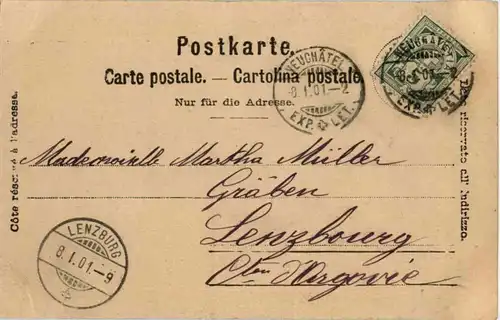 Postkarte.
Carte postale. — Cartolina postale
Nur für die Adresse.
Côte réservé à l'adresse.
NEUCHÂTEL
8.I.01.–2
EXP. LET.
NEUCHÂTEL
8.I.01.–2
EXP. LET.
riservato all' indirizzo.
Mademoiselle Martha Müller
Gräben
Lenzbourg
Cten d'Argovie
LENZBURG
8.I.01.–9